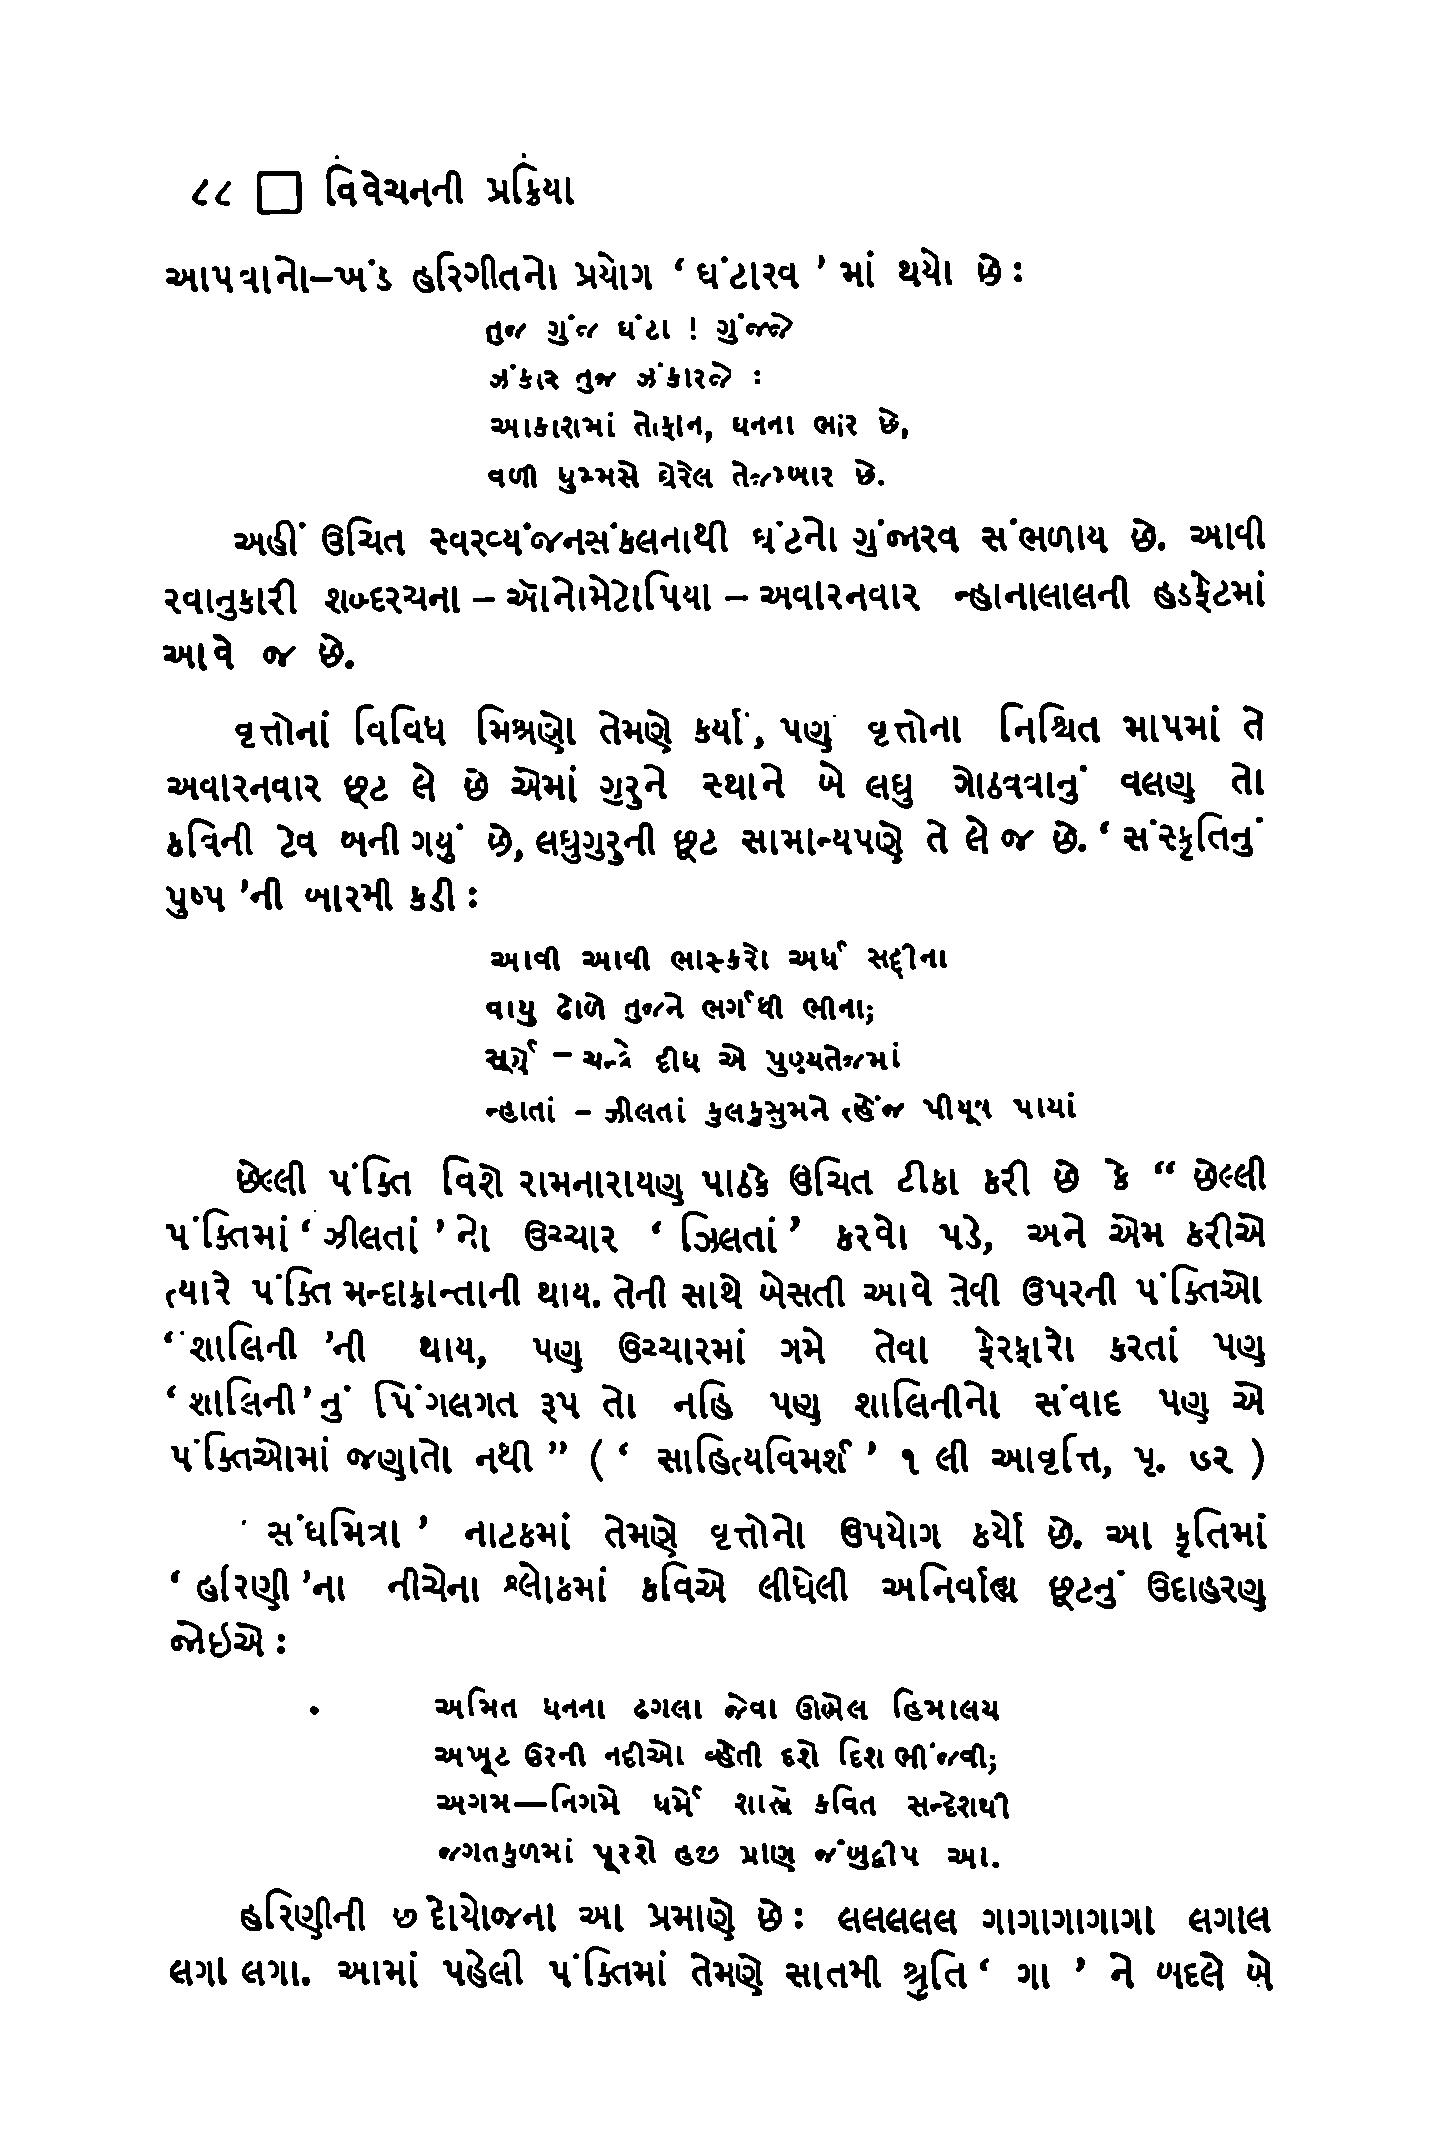 ૮૮ □ વિવેચનની પ્રક્રિયા
આપવાનો–ખંડ હરિગીતનો પ્રયોગ ‘ ઘંટારવ ’ માં થયો છે :
તુજ ગુંજ ઘંટા ! ગુંજજે
ઝંકાર તુજ ઝંકારજે :
આકાશમાં તોફાન, ઘનના ભાર છે,
વળી ધુમ્મસે ઘેરેલ તેજમ્બાર છે.
અહીં ઉચિત સ્વરવ્યંજનસંકલનાથી ઘંટનો ગુંજારવ સંભળાય છે. આવી
રવાનુકારી શબ્દરચના – ઑનોમેટોપિયા – અવારનવાર ન્હાનાલાલની હડફેટમાં
આવે જ છે.
વૃત્તોનાં વિવિધ મિશ્રણો તેમણે કર્યાં, પણ વૃત્તોના નિશ્ચિત માપમાં તે
અવારનવાર છૂટ લે છે એમાં ગુરુને સ્થાને બે લઘુ ગોઠવવાનું વલણ તો
કવિની ટેવ બની ગયું છે, લઘુગુરુની છૂટ સામાન્યપણે તે લે જ છે. ‘ સંસ્કૃતિનું
પુષ્પ ’ની બારમી કડી :
આવી આવી ભાસ્કરો અર્ધ સદ્દીના
વાયુ ઢોળે તુજને ભર્ગધી ભીના;
સૂર્યે – ચન્દ્રે દીધ એ પુણ્યતેજમાં
ન્હાતાં – ઝીલતાં કુલકુસુમને ત્હેંજ પીયૂષ પાયાં
છેલ્લી પંક્તિ વિશે રામનારાયણ પાઠકે ઉચિત ટીકા કરી છે કે “ છેલ્લી
પંક્તિમાં ‘ ઝીલતાં ’નો ઉચ્ચાર ‘ ઝિલતાં ’ કરવો પડે, અને એમ કરીએ
ત્યારે પંક્તિ મન્દાક્રાન્તાની થાય. તેની સાથે બેસતી આવે તેવી ઉપરની પંક્તિઓ
‘ શાલિની ’ની થાય, પણ ઉચ્ચારમાં ગમે તેવા ફેરફારો કરતાં પણ
‘ શાલિની’નું પિંગલગત રૂપ તો નહિ પણ શાલિનીનો સંવાદ પણ એ
પંક્તિઓમાં જણાતો નથી ” ( ‘ સાહિત્યવિમર્શ ’ ૧ લી આવૃત્તિ, પૃ. ૭૨ )
‘ સંઘમિત્રા ’ નાટકમાં તેમણે વૃત્તોનો ઉપયોગ કર્યો છે. આ કૃતિમાં
‘ હરિણી ’ના નીચેના શ્લોકમાં કવિએ લીધેલી અનિર્વાહ્ય છૂટનું ઉદાહરણ
જોઇએ :
અમિત ધનના ઢગલા જેવા ઊભેલ હિમાલય
અખૂટ ઉરની નદીઓ વ્હેતી દશે દિશ ભીંજવી;
અગમ—નિગમે ધર્મે શાસ્ત્રે કવિત સન્દેશથી
જગતકુળમાં પૂરશે હજી પ્રાણ જંબુદ્વીપ આ.
હરિણીની છંદોયોજના આ પ્રમાણે છે : લલલલલ ગાગાગાગાગા લગાલ
લગા લગા. આમાં પહેલી પંક્તિમાં તેમણે સાતમી શ્રુતિ ‘ ગા ’ ને બદલે બે